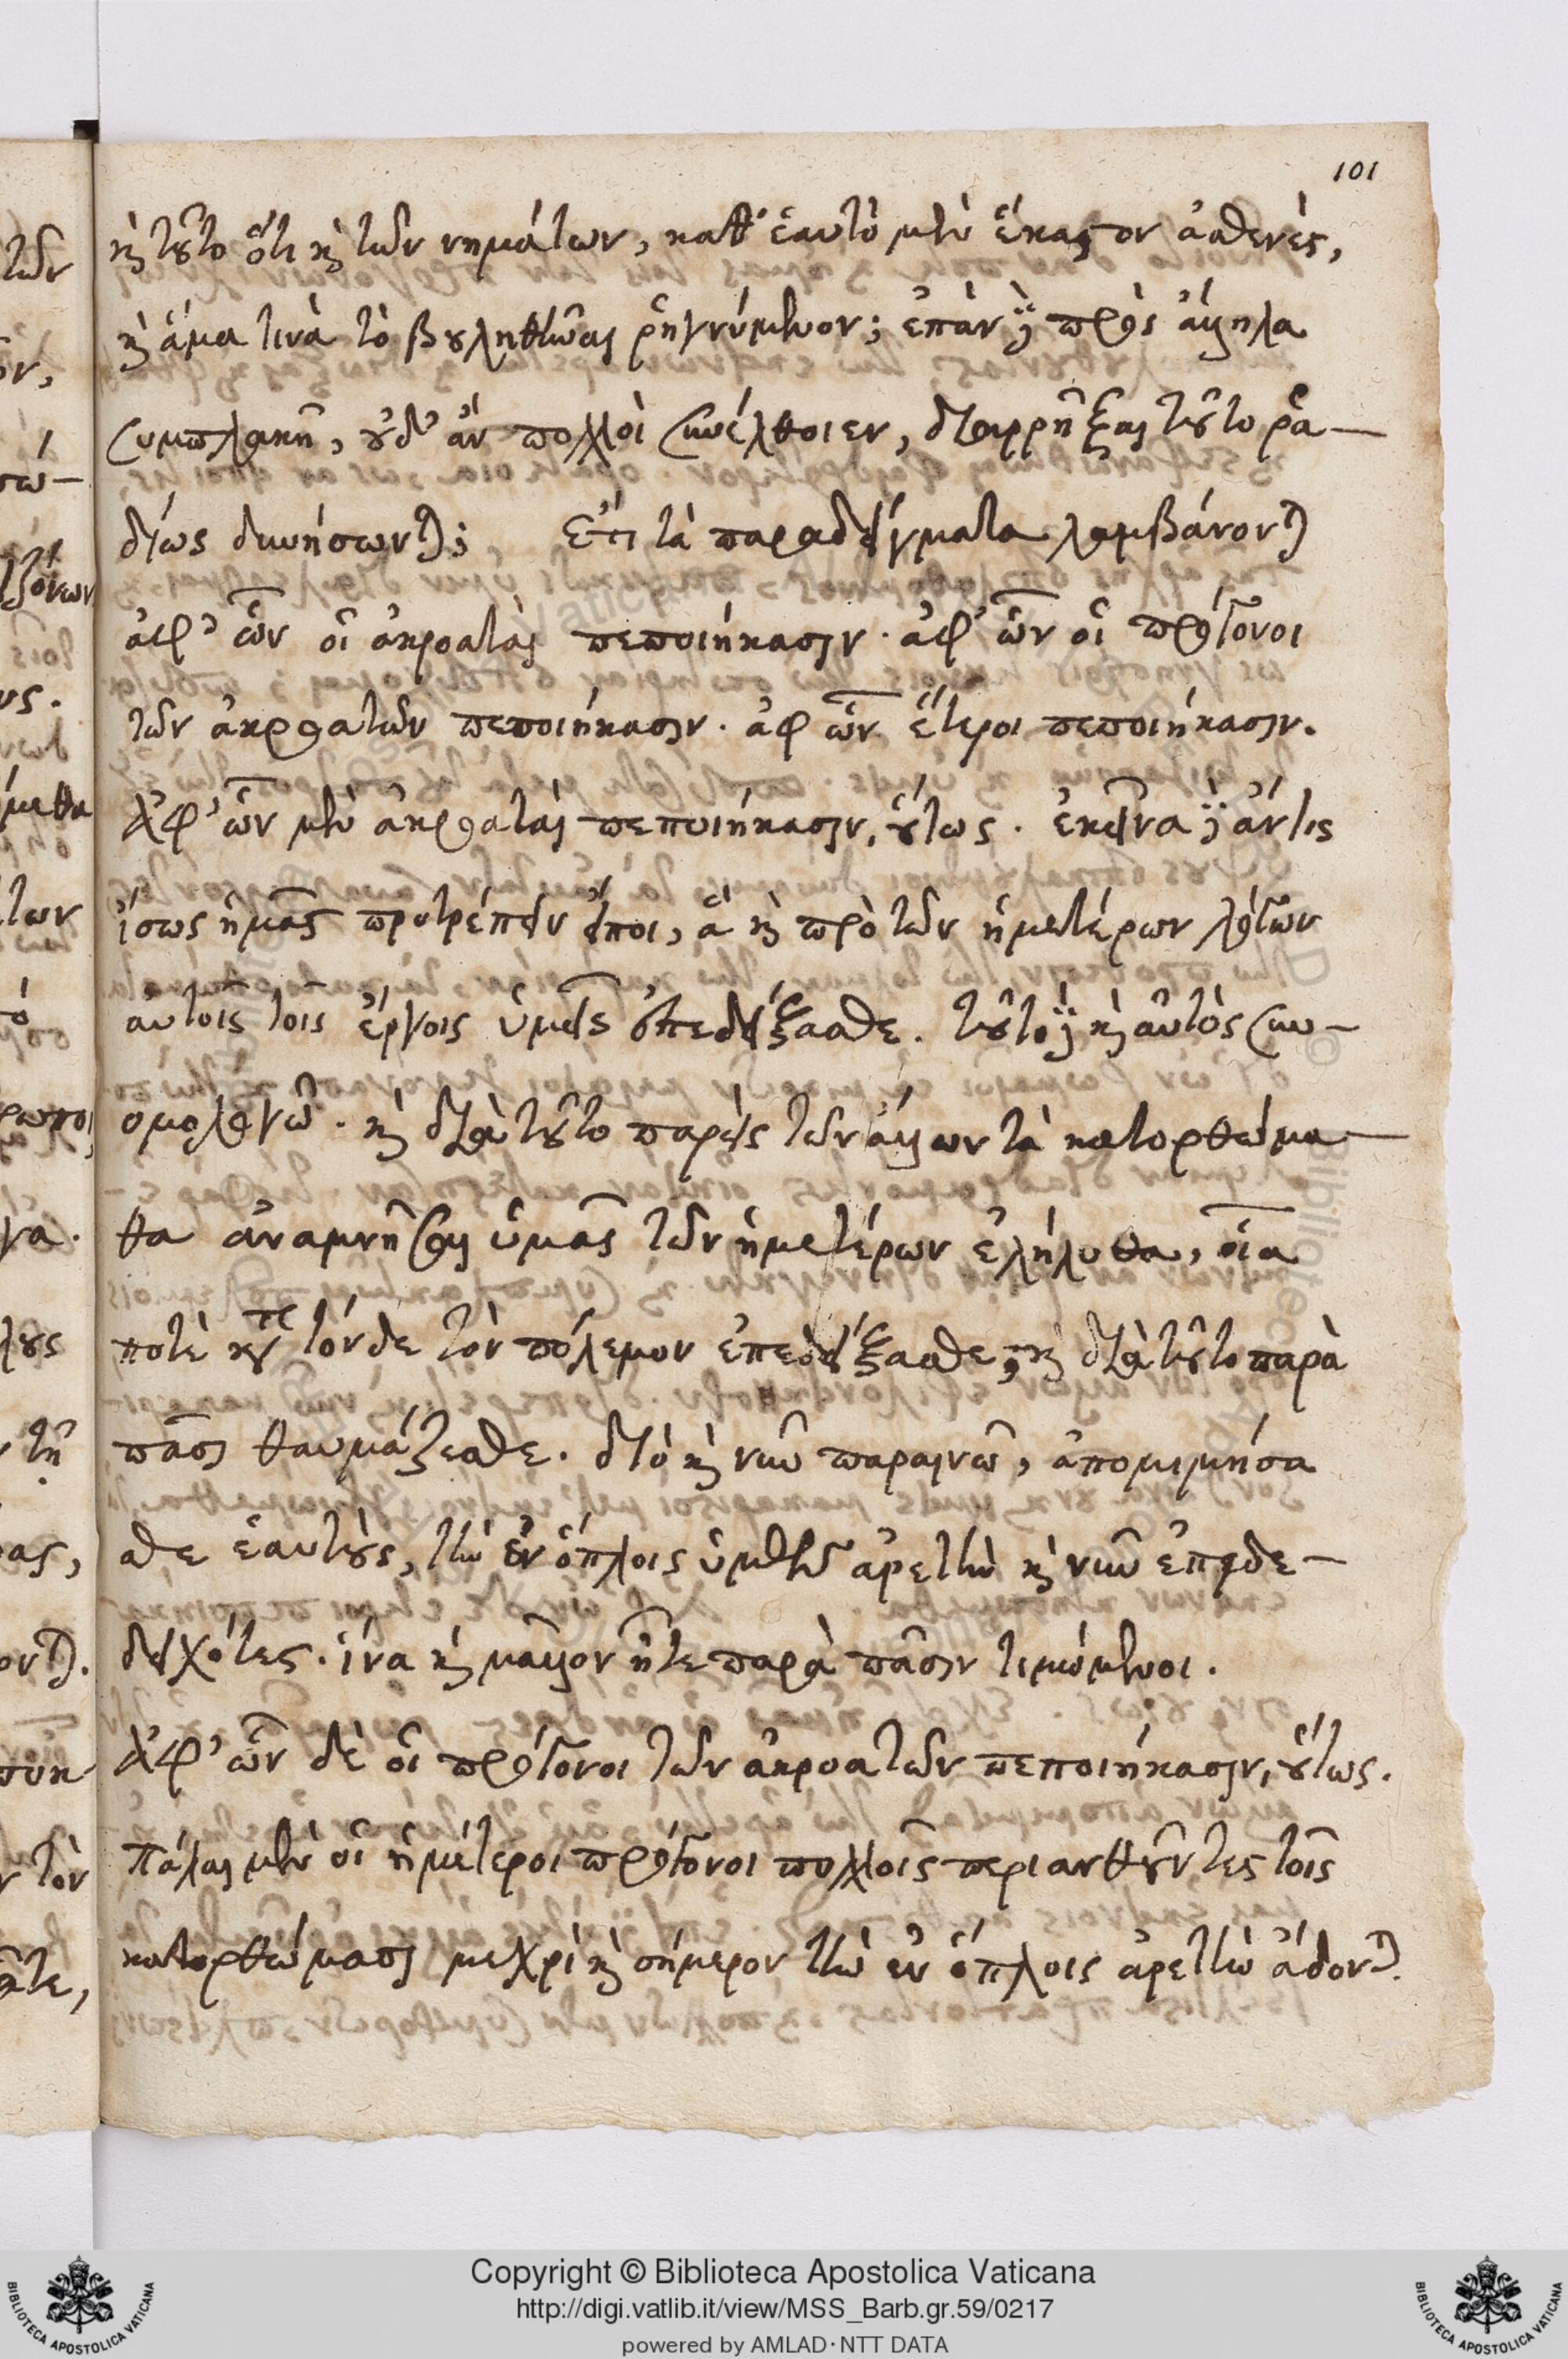 101
καὶ τοῦτο ὅτι καὶ τῶν νημάτων, καθ' ἑαυτὸ μὲν ἕκαστον ἀσθενὲς,
καὶ ἅμα τινὰ τὸ βουληθῆναι ῥηγνύμενον; ἐπὰν δὲ πρὸς ἄλληλα
συμπλακῆ, οὐδ' ἂν πολλοὶ συνέλθοιεν, διαρρῆξαι τοῦτο ῥα-
δίως δυνήσωνται; Ἔτι τὰ παραδείγματα λαμβάνονται
ἀφ' ὧν οἱ ἀκροαταὶ πεποιήκασιν· ἀφ' ὧν οἱ πρόγονοι
τῶν ἀκροατῶν πεποιήκασιν· ἀφ ὧν ἕτεροι πεποιήκασιν.
Ἀφ' ὧν μὲν ἀκροαταὶ πεποιήκασιν, οὕτως· ἐκεῖνα δὲ ἄν τις
ἴσως ἡμᾶς προτρέπειν εἴποι, ἃ καὶ πρὸ τῶν ἡμετέρων λόγων
αὐτοῖς τοῖς ἔργοις ὑμεῖς ἐπεδείξασθε. τοῦτο δὲ καὶ αὐτὸς συν-
ομολογῶ· καὶ διὰ τοῦτο παρεὶς τῶν ἄλλων τὰ κατορθώμα-
θα ἀναμνῆσαι ὑμᾶς τῶν ἡμετέρων ἐλήλυθα, οἷα
ποτὲ κατὰ τόνδε τὸν πόλεμον ἐπεδείξασθε, καὶ διὰ τοῦτο παρὰ
πᾶσι θαυμάζεσθε. διὸ καὶ νῦν παραινῶ, ἀπομιμήσα
σθε ἑαυτοὺς, τὴν ἐν ὅπλοις ὑμῶν ἀρετὴν καὶ νῦν ἐπιδε-
δειχότες· ἵνα καὶ μᾶλλον ἦτε παρὰ πᾶσιν τιμώμενοι.
Ἀφ' ὧν δὲ οἱ πρόγονοι τῶν ἀκροατῶν πεποιήκασιν, οὕτως.
Πάλαι μὲν οἱ ἡμέτεροι πρόγονοι πολλοῖς περιανθοῦντες τοῖς
κατορθώμασι μεχρὶ καὶ σήμερον τὴν ἐν ὅπλοις ἀρετὴν ἄδονται.
Copyright © Biblioteca Apostolica Vaticana
http://digi.vatlib.it/view/MSS_Barb.gr.59/0217
powered by AMLAD·NTT DATA
BIBLIOTECA APOSTOLICA VATICANA
BIBLIOTECA APOSTOLICA VATICANA